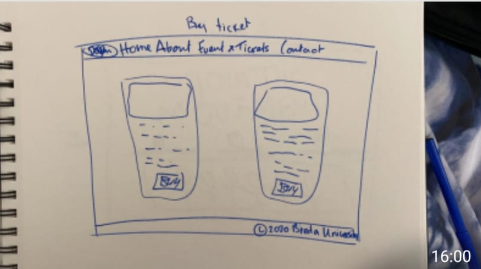 Buy ticket
Home About Event & Tickets Contact
BUY
BUY
© 2020 Breda University
16:00